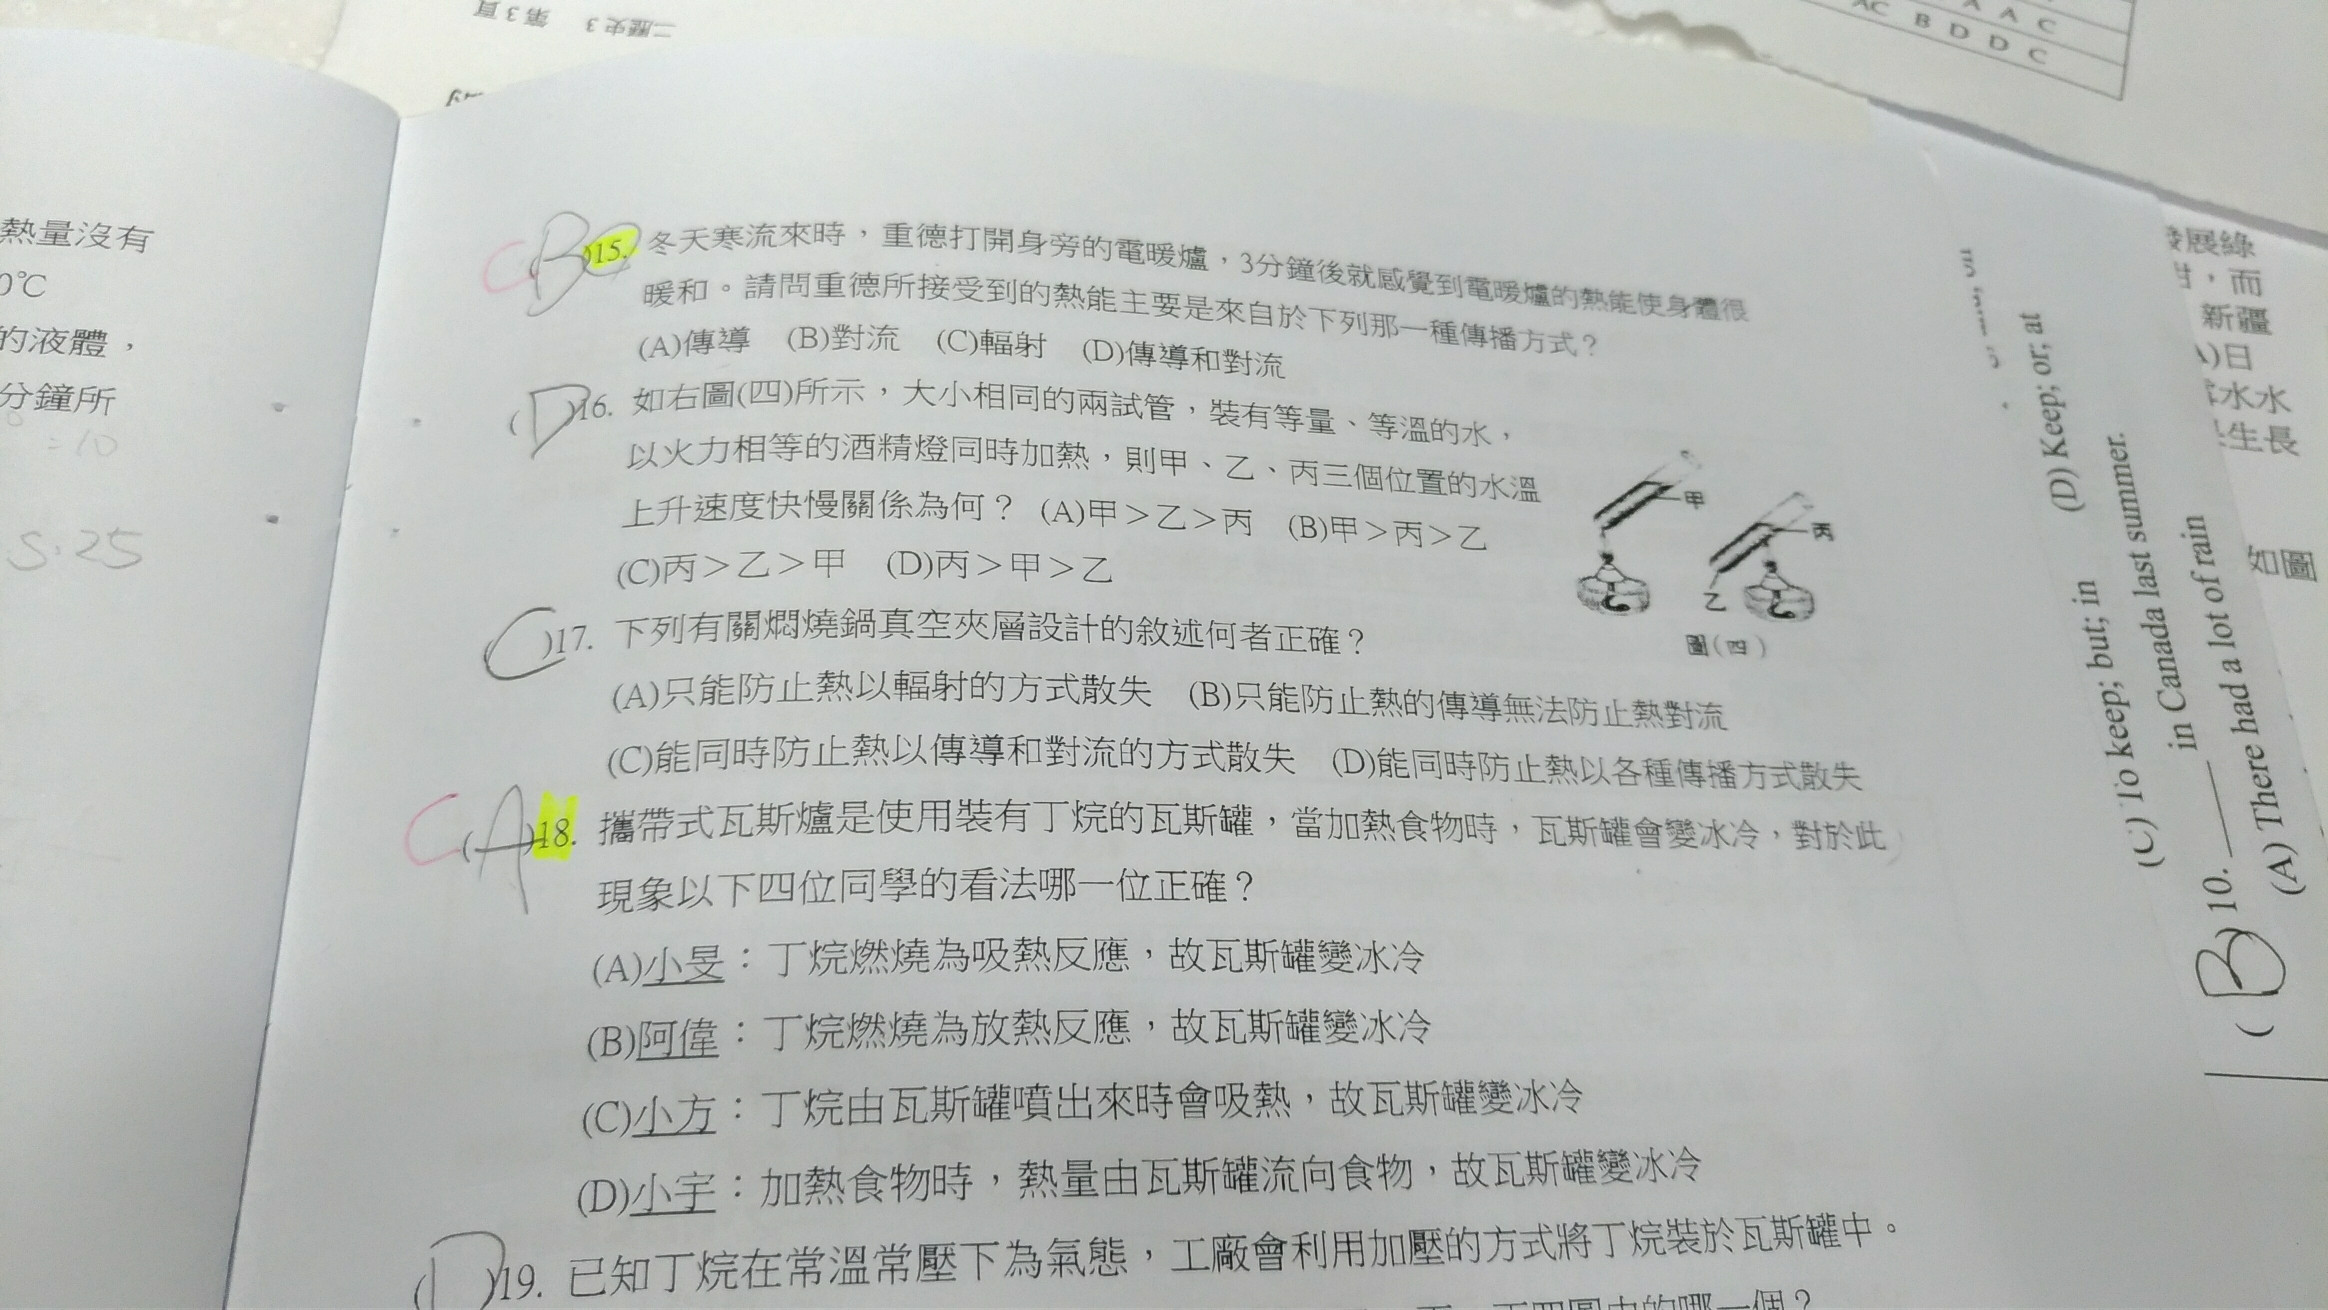 二歷史 3 第 3 頁
A A C
AC B D D C
熱量沒有
0℃
的液體，
分鐘所
= 10
S: 25
C(B)15. 冬天寒流來時，重德打開身旁的電暖爐，3分鐘後就感覺到電暖爐的熱能使身體很
暖和。請問重德所接受到的熱能主要是來自於下列那一種傳播方式？
(A)傳導 (B)對流 (C)輻射 (D)傳導和對流
(D)16. 如右圖(四)所示，大小相同的兩試管，裝有等量、等溫的水，
以火力相等的酒精燈同時加熱，則甲、乙、丙三個位置的水溫
上升速度快慢關係為何？ (A)甲＞乙＞丙 (B)甲＞丙＞乙
(C)丙＞乙＞甲 (D)丙＞甲＞乙
甲
丙
乙
圖(四)
(C)17. 下列有關燜燒鍋真空夾層設計的敘述何者正確？
(A)只能防止熱以輻射的方式散失 (B)只能防止熱的傳導無法防止熱對流
(C)能同時防止熱以傳導和對流的方式散失 (D)能同時防止熱以各種傳播方式散失
C(A)18. 攜帶式瓦斯爐是使用裝有丁烷的瓦斯罐，當加熱食物時，瓦斯罐會變冰冷，對於此
現象以下四位同學的看法哪一位正確？
(A)小旻：丁烷燃燒為吸熱反應，故瓦斯罐變冰冷
(B)阿偉：丁烷燃燒為放熱反應，故瓦斯罐變冰冷
(C)小方：丁烷由瓦斯罐噴出來時會吸熱，故瓦斯罐變冰冷
(D)小宇：加熱食物時，熱量由瓦斯罐流向食物，故瓦斯罐變冰冷
(D)19. 已知丁烷在常溫常壓下為氣態，工廠會利用加壓的方式將丁烷裝於瓦斯罐中。
四圖中的哪一個？
(C) To keep; but; in (D) Keep; or; at
(B)10. ____ in Canada last summer.
(A) There had a lot of rain in
發展綠
，而
新疆
)日
水水
生長
如圖